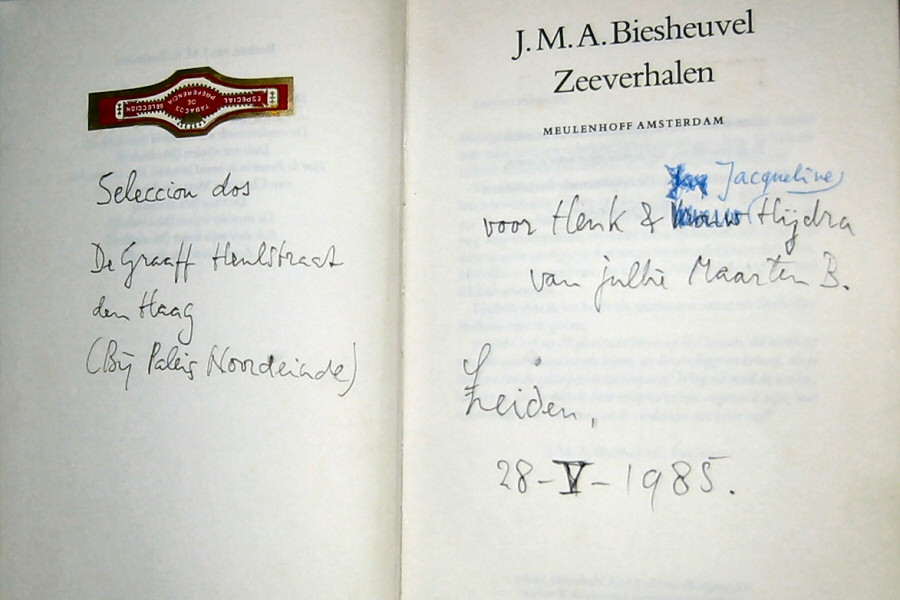 ESPECIAL
PREFERENCIA
DE
TABACOS
SELECCION
Seleccion dos
De Graaff Heulstraat
den Haag
(Bij Paleis Noordeinde)
J.M.A. Biesheuvel
Zeeverhalen
MEULENHOFF AMSTERDAM
Jacqueline
voor Henk & Hijdra
van jullie Maarten B.
Leiden,
28-V-1985.